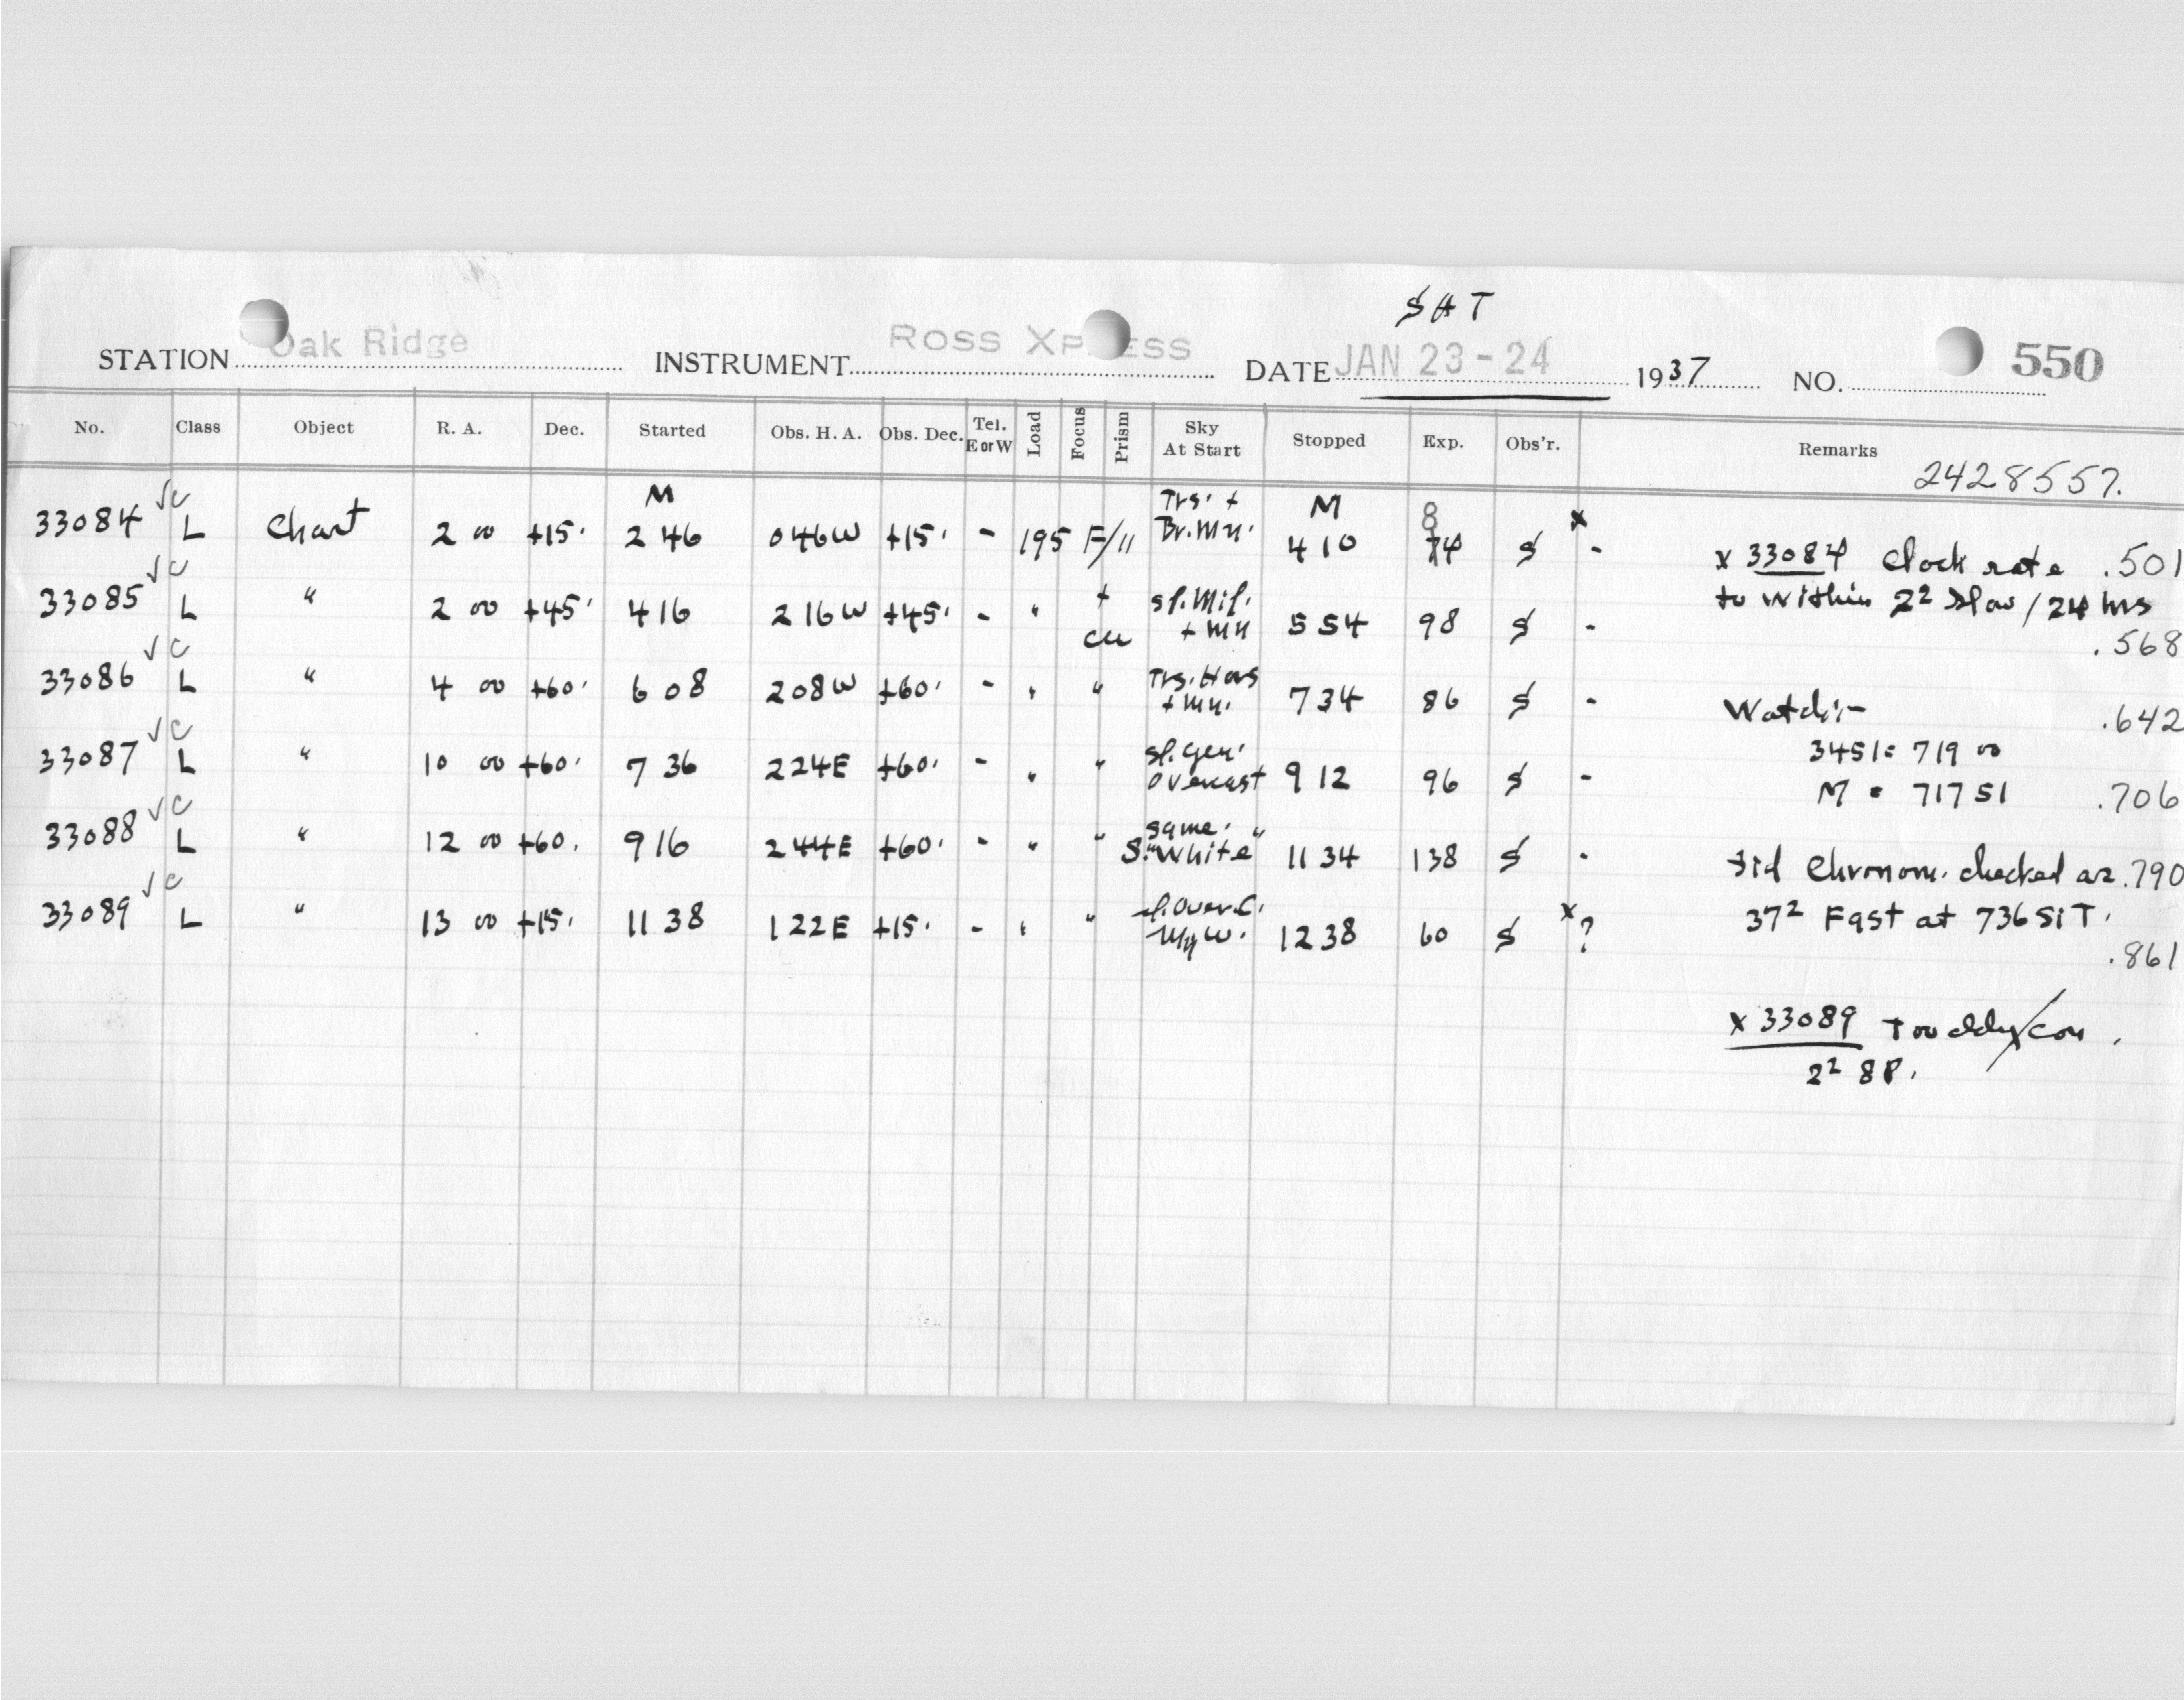 SAT
STATION Oak Ridge INSTRUMENT ROSS XPRESS DATE JAN 23-24 1937 NO. 550
No. Class Object R. A. Dec. Started Obs. H. A. Obs. Dec. Tel. E or W Load Focus Prism Sky At Start Stopped Exp. Obs'r. Remarks
2428557.
33084 √c L Chart 2 00 +15. M 2 46 046W +15. - 195 F/11 Trs. + Br. Mn. M 4 10 84 S x - x 33084 Clock rate .501
to within 2² slow / 24 hrs
33085 √c L " 2 00 +45. 4 16 2 16W +45. - " + cu sl. Mil. + Mn 5 54 98 S - .568
33086 √c L " 4 00 +60. 6 08 208W +60. - " " Trs. Hors + Mn. 7 34 86 S - Watch:- .642
3451= 719 00
33087 √c L " 10 00 +60. 7 36 224E +60. - " " sl. gen. overcast 9 12 96 S - M = 717 51 .706
33088 √c L " 12 00 +60. 9 16 244E +60. - " " same. S. "White" 11 34 138 S - Sid Chronom. checked as .790
37² Fast at 736 Si T.
33089 √c L " 13 00 +15. 11 38 122E +15. - " " sl. Over.C. 12 38 60 S x ? .861
x 33089
2² 8P.